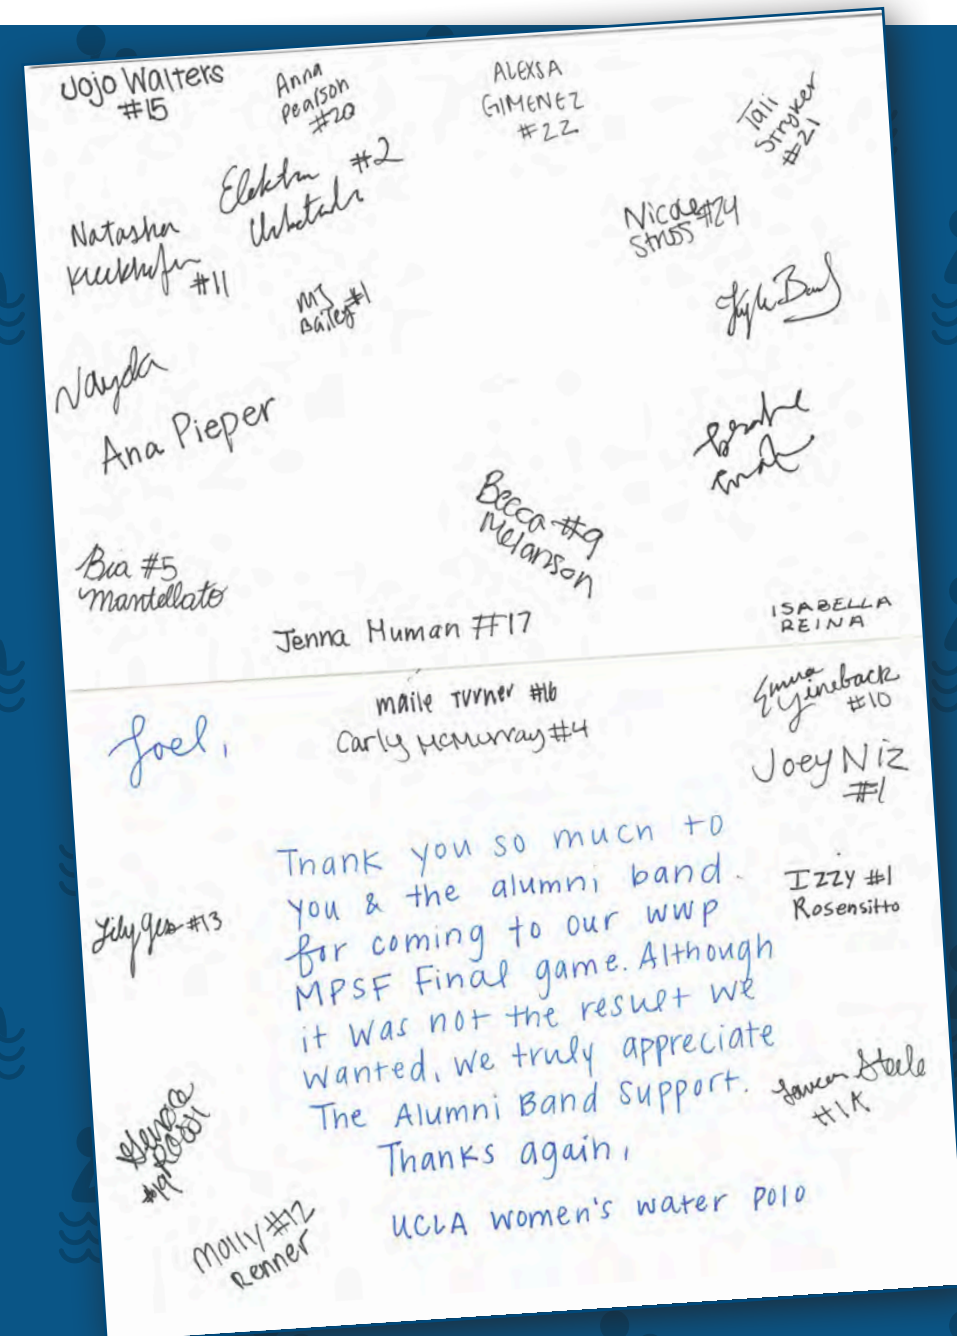 Jojo Walters
#15
Anna
Pearson
#20
ALEXSA
GIMENEZ
#22
Tali
Stryker
#21
#2
Natasha
#11
Nicole #24
Struss
MJ
Bailey #1
Nayda
Ana Pieper
Becca #9
Melanson
Bia #5
Mantellato
Jenna Muman #17
ISABELLA
REINA
Maile Turner #16
Carly McMurray #4
Emma
Lineback
#10
Joey Niz
#1
Joel,
Thank you so much to
you & the alumni band
for coming to our WWP
MPSF Final game. Although
it was not the result we
wanted, we truly appreciate
The Alumni Band Support.
Thanks again,
UCLA Women's water polo
Izzy #1
Rosensitto
Lily Gess #13
Lauren Steele
#1A
#19
Molly #12
Renner